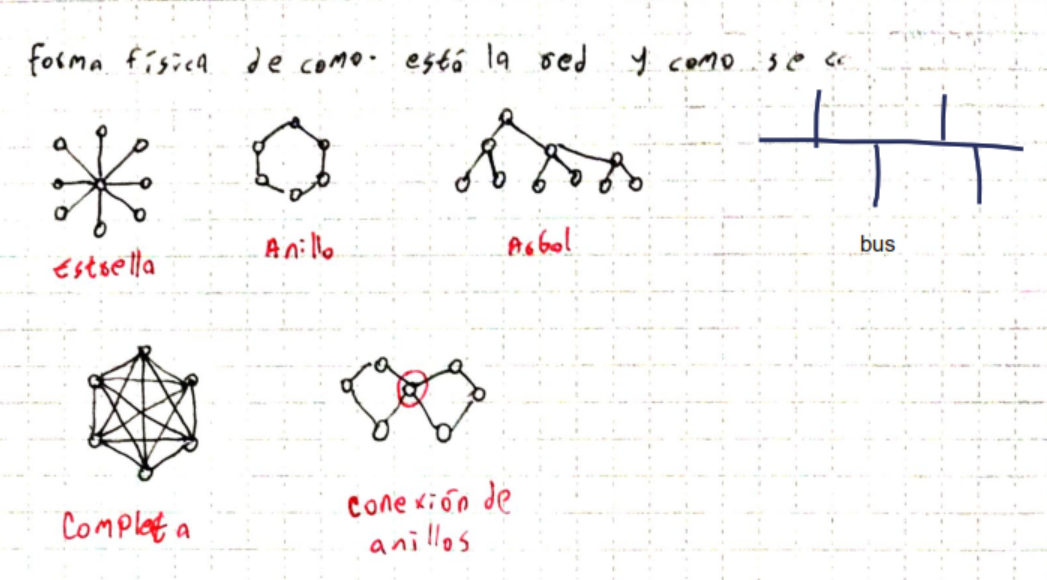 forma física de como. está la red y como se
Estrella
Anillo
Arbol
bus
Completa
conexión de
anillos